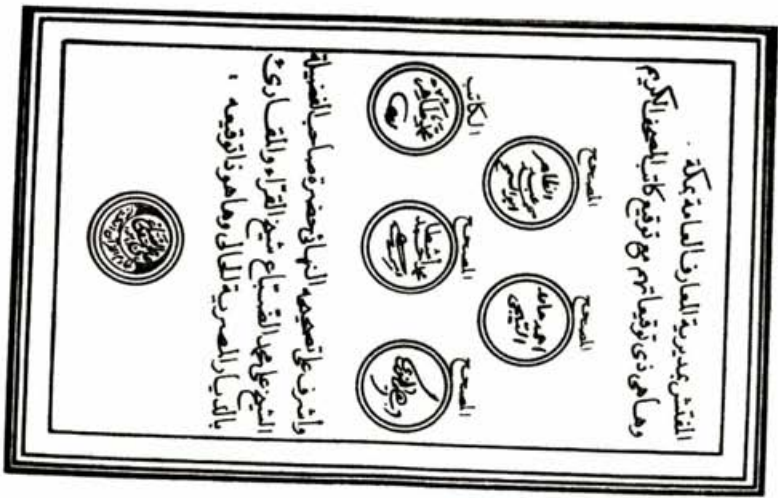 المفتش بمديرية المعارف العامة بمكة .
وها هى ذى توقيعاتهم مع توقيع كاتب المصحف الكريم
المصحح
احمد حامد
التيجى
المصحح
عبد الظاهر
ابو السمح
المصحح
المصحح
الكاتب
محمد طاهر
وأشرف على تصحيحه النهائى حضرة صاحب الفضيلة
الشيخ على محمد الضباع شيخ القراء والمقارئ
بالديار المصرية الحالى وها هو ذا توقيعه .